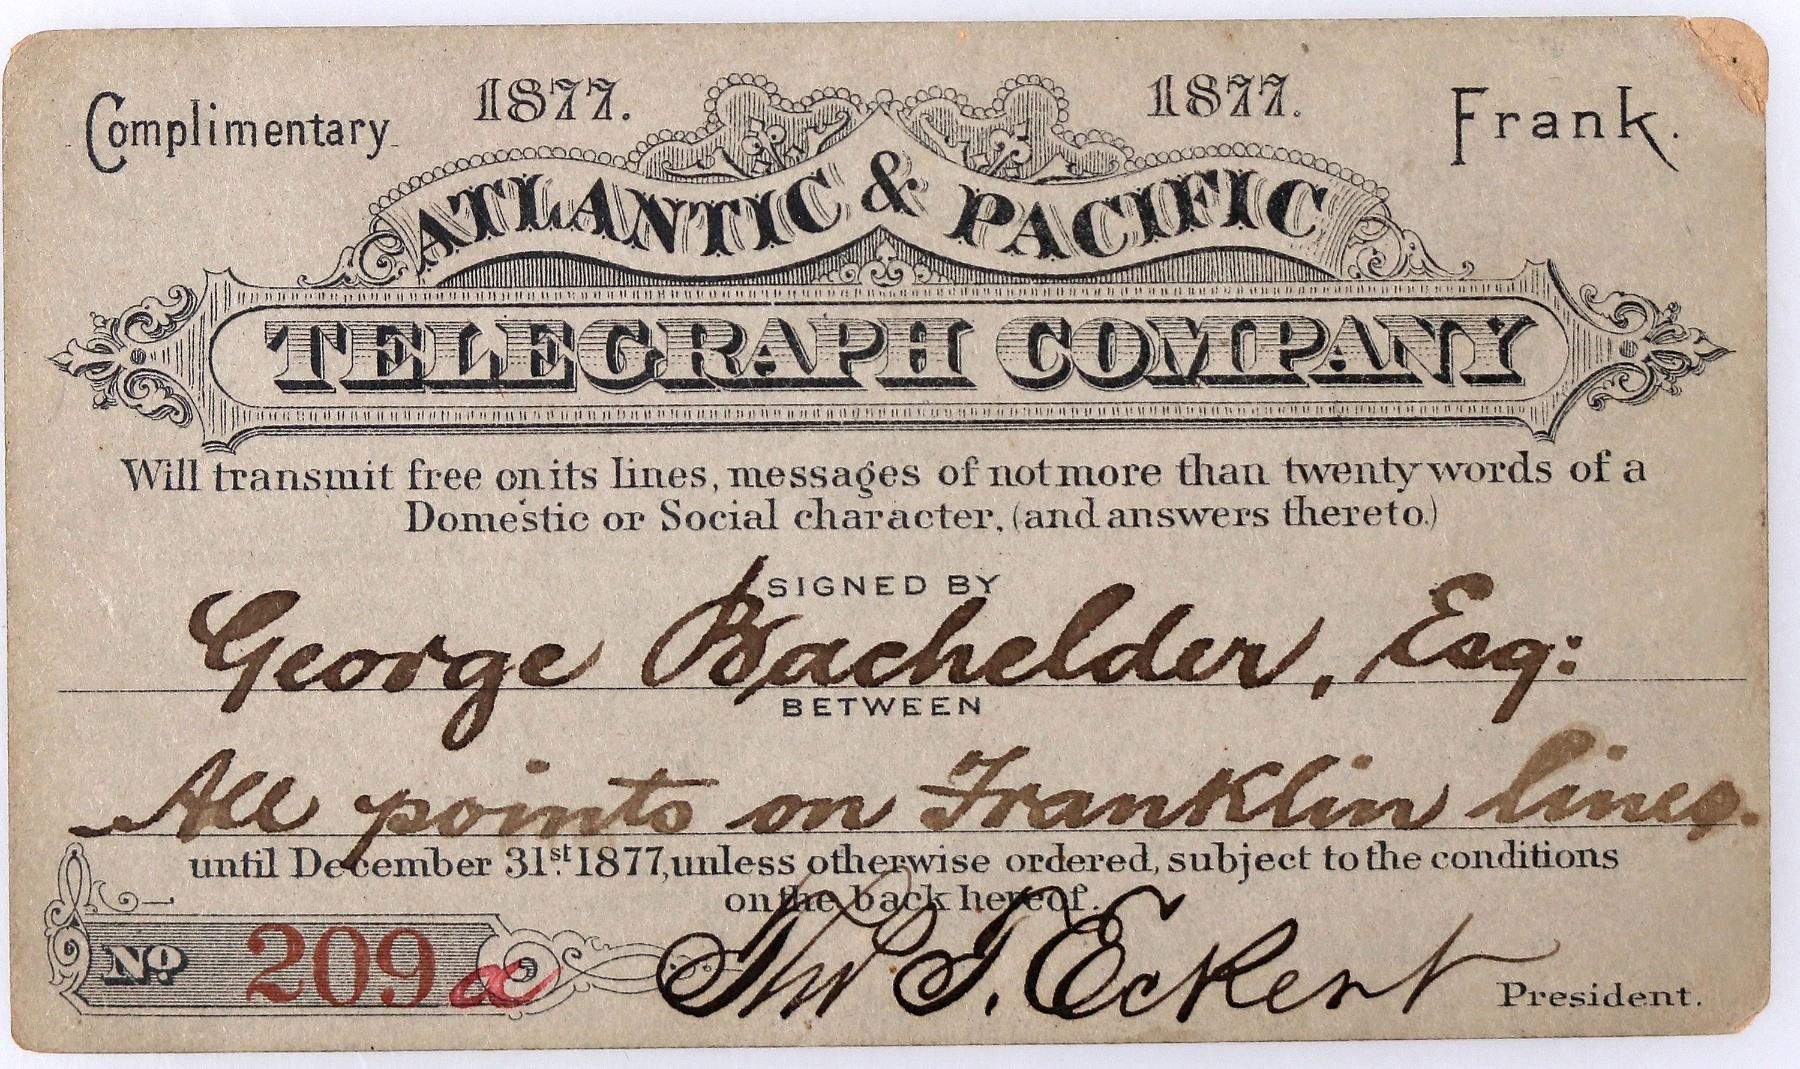 Complimentary 1877. 1877. Frank.
ATLANTIC & PACIFIC
TELEGRAPH COMPANY
Will transmit free on its lines, messages of not more than twenty words of a
Domestic or Social character, (and answers thereto.)
SIGNED BY
George Bachelder, Esq:
BETWEEN
All points on Franklin lines.
until December 31st. 1877, unless otherwise ordered, subject to the conditions
on the back hereof.
No. 209 a Tho T. Eckert President.